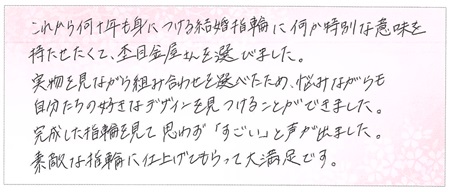 これから何十年も身につける結婚指輪に何か特別な意味を
持たせたくて、杢目金屋さんを選びました。
実物を見ながら組み合わせを選べたため、悩みながらも
自分たちの好きなデザインを見つけることができました。
完成した指輪を見て思わず「すごい」と声が出ました。
素敵な指輪に仕上げてもらって大満足です。